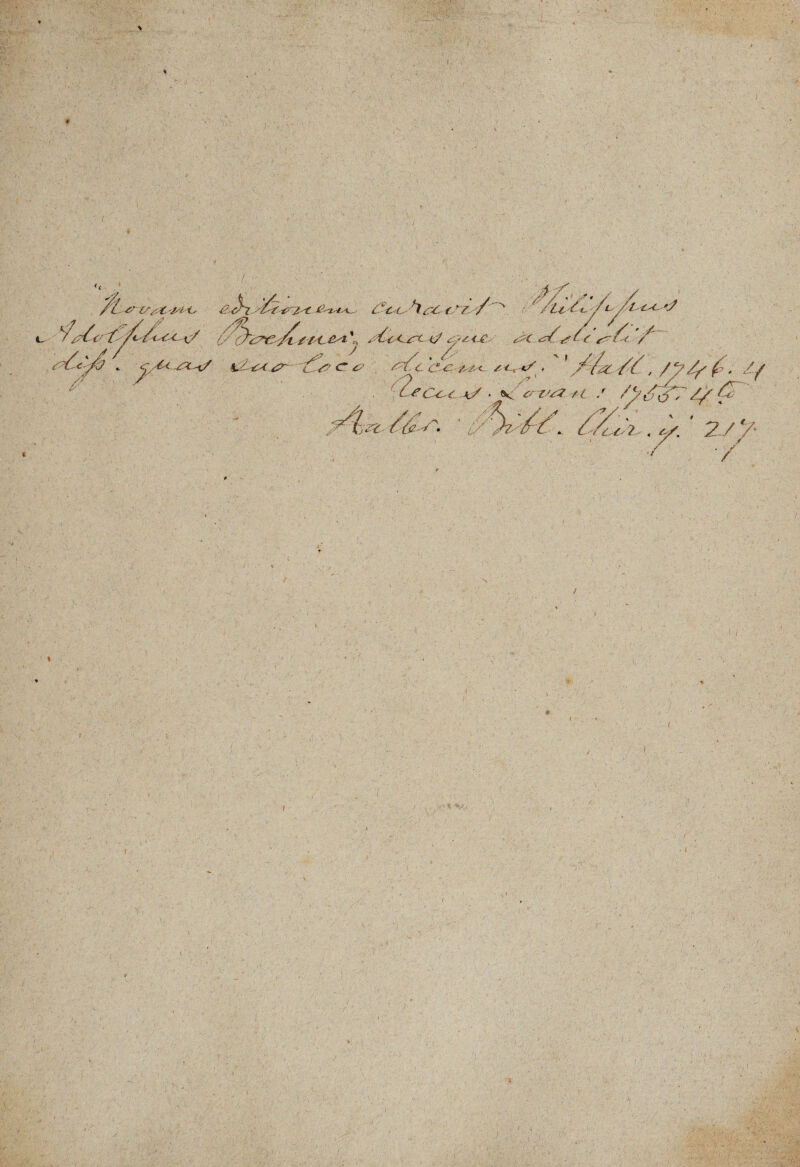 "Novam editionem curavit Philippus
Adolphus Boehmer, suasque addidit
diss. quas suo loco dicemus." Hall. 1746. 4
Recus. Lovan: 1755. 4
Haller. Bibl. Chir. 217